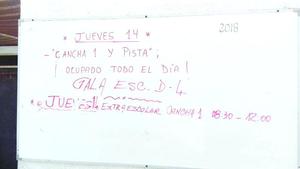 * JUEVES 14 *
2018
- "CANCHA 1 Y PISTA";
¡ OCUPADO TODO EL DÍA !
GALA ESC. D-4
* JUE EXTRAESCOLAR CANCHA 1 8:30 - 12:00